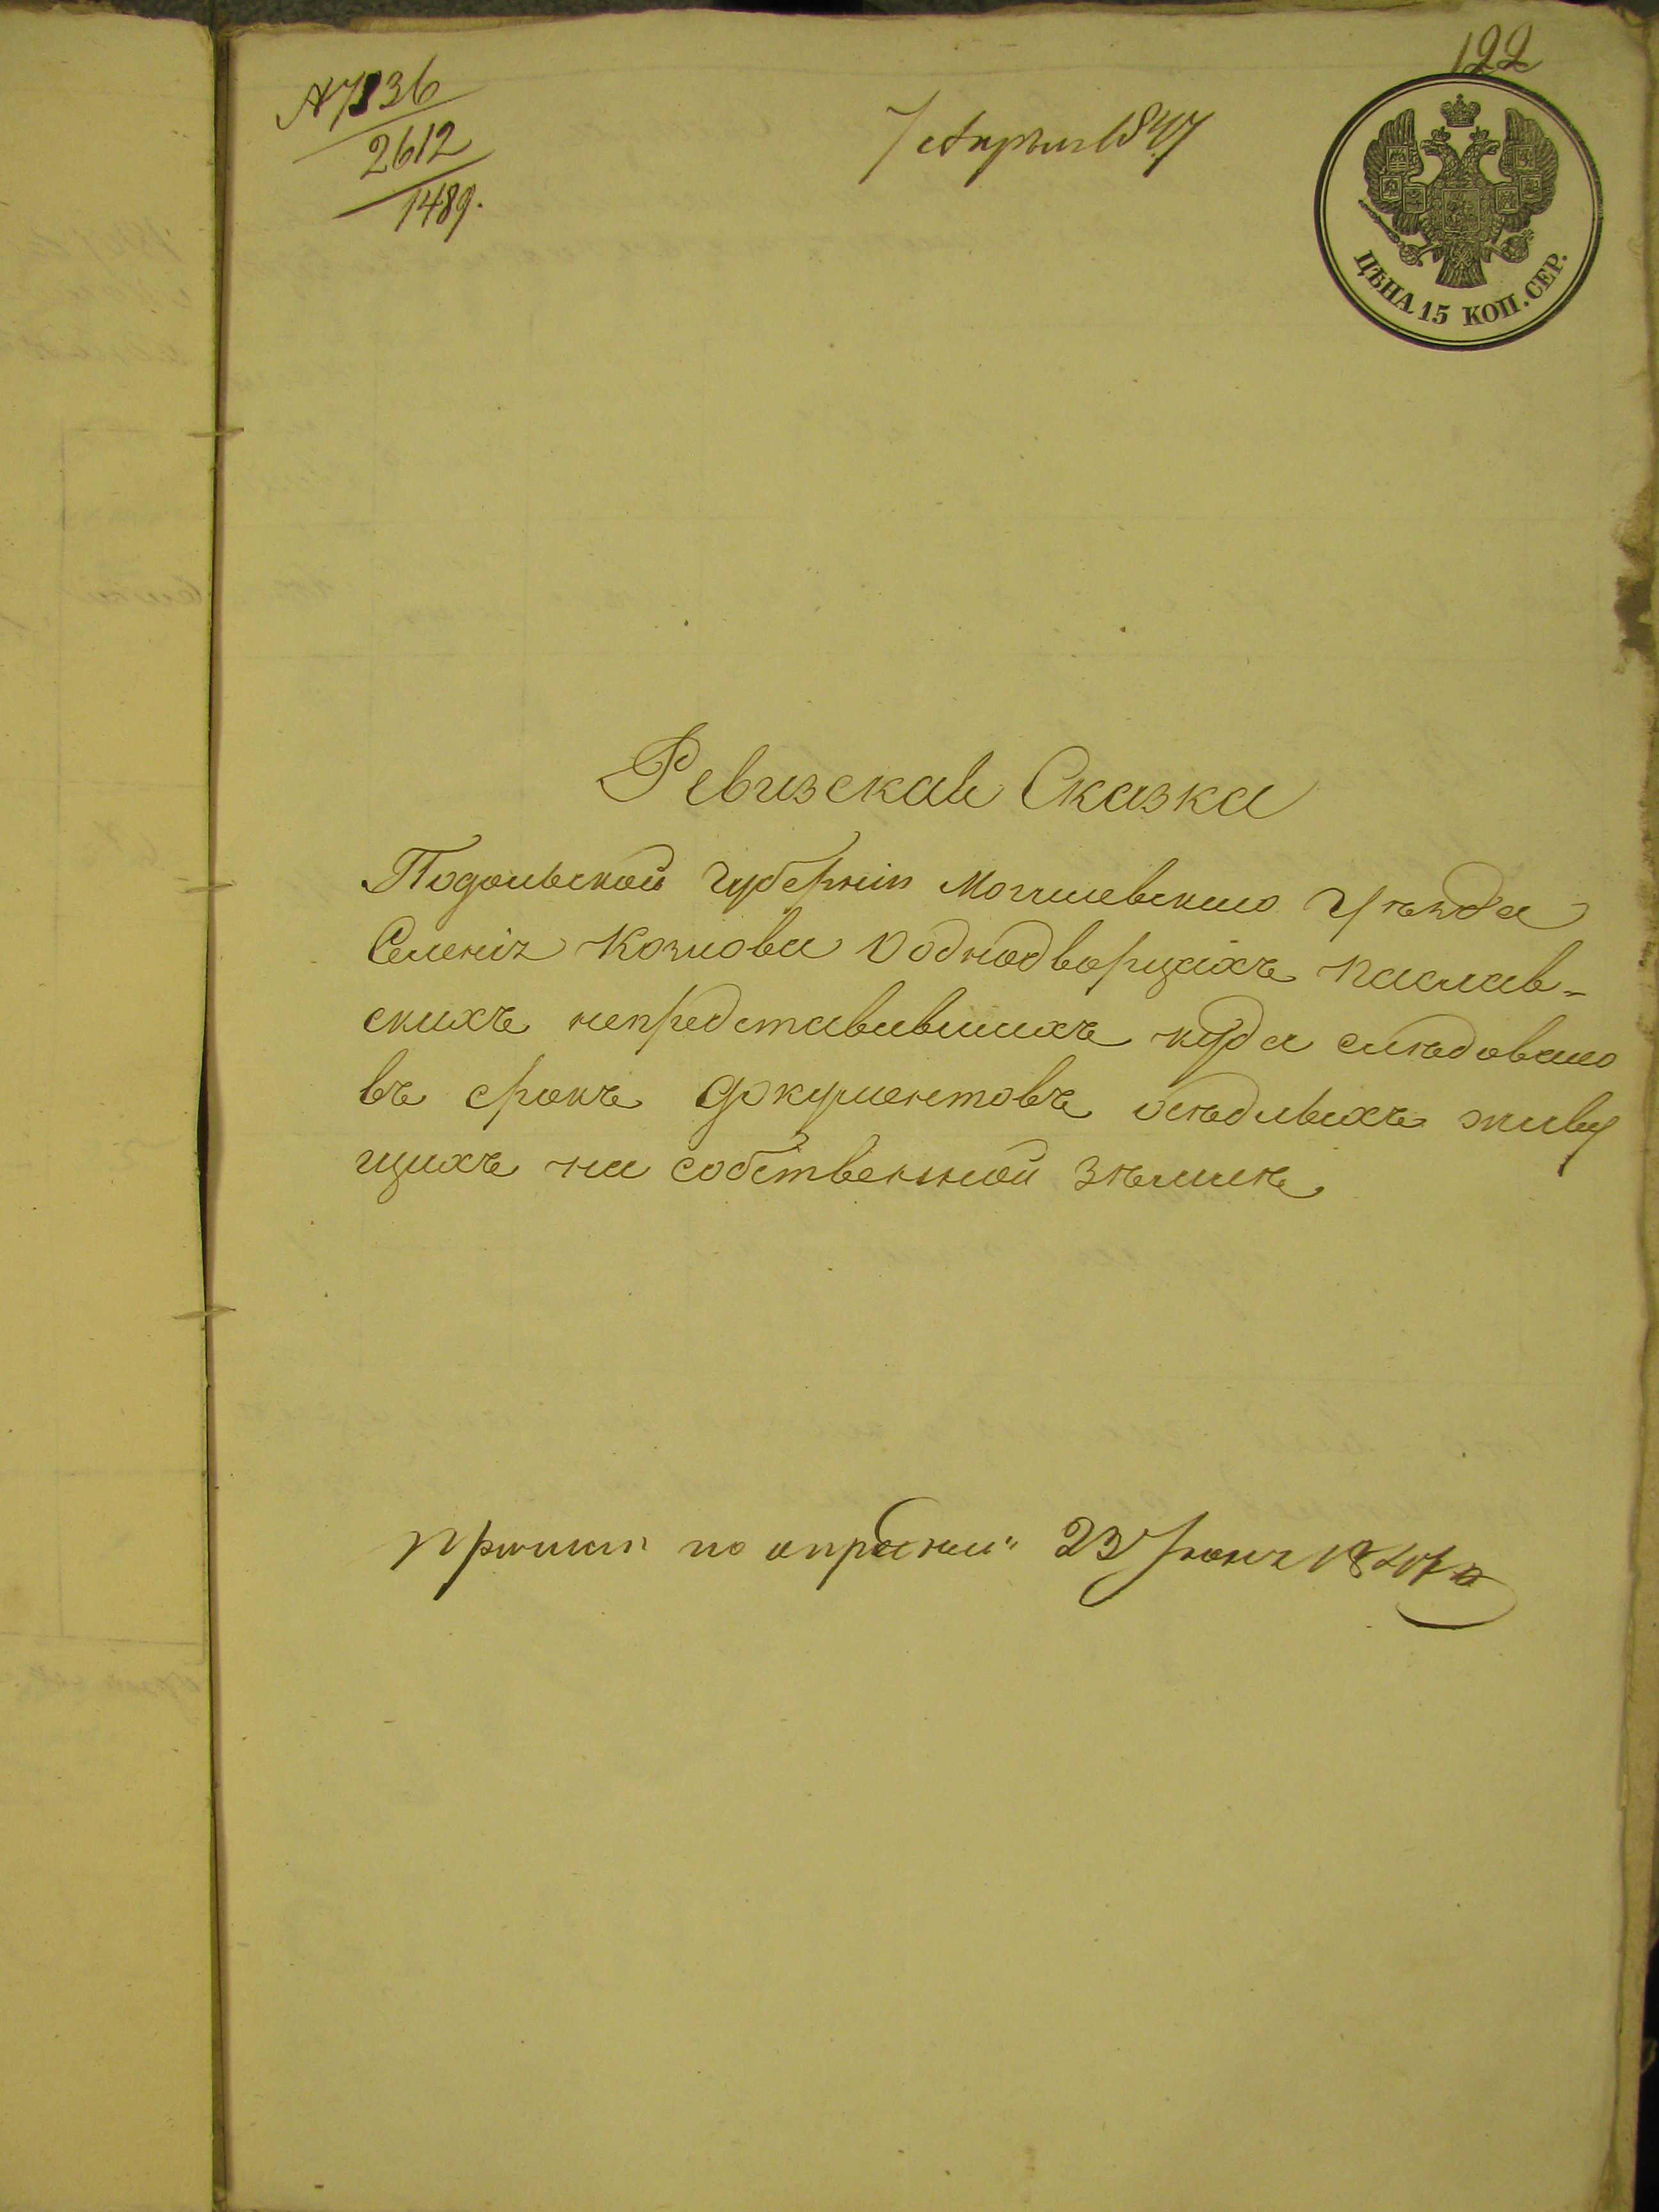 122
№ 7136
2612
1489.
7 Апреля 1847
ЦѢНА 15 КОП. СЕР.
Ревизская Сказка
Подольской Губерніи Могилевского Уѣзда
Селенія Козлова О однодворцахъ Паслав-
скихъ непредставившихъ куда слѣдовало
въ срокъ документовъ осѣдлыхъ живу
щихъ на собственной зѣмлѣ
по 23 Іюня 1847